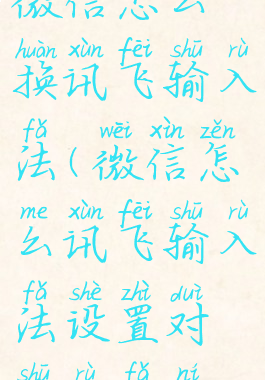 微信怎么
huàn xùn fēi shū rù
换讯飞输入
fǎ wēi xìn zěn
法(微信怎
me xùn fēi shū rù
么讯飞输入
fǎ shè zhì duì
法设置对
shū rù fǎ nǐ